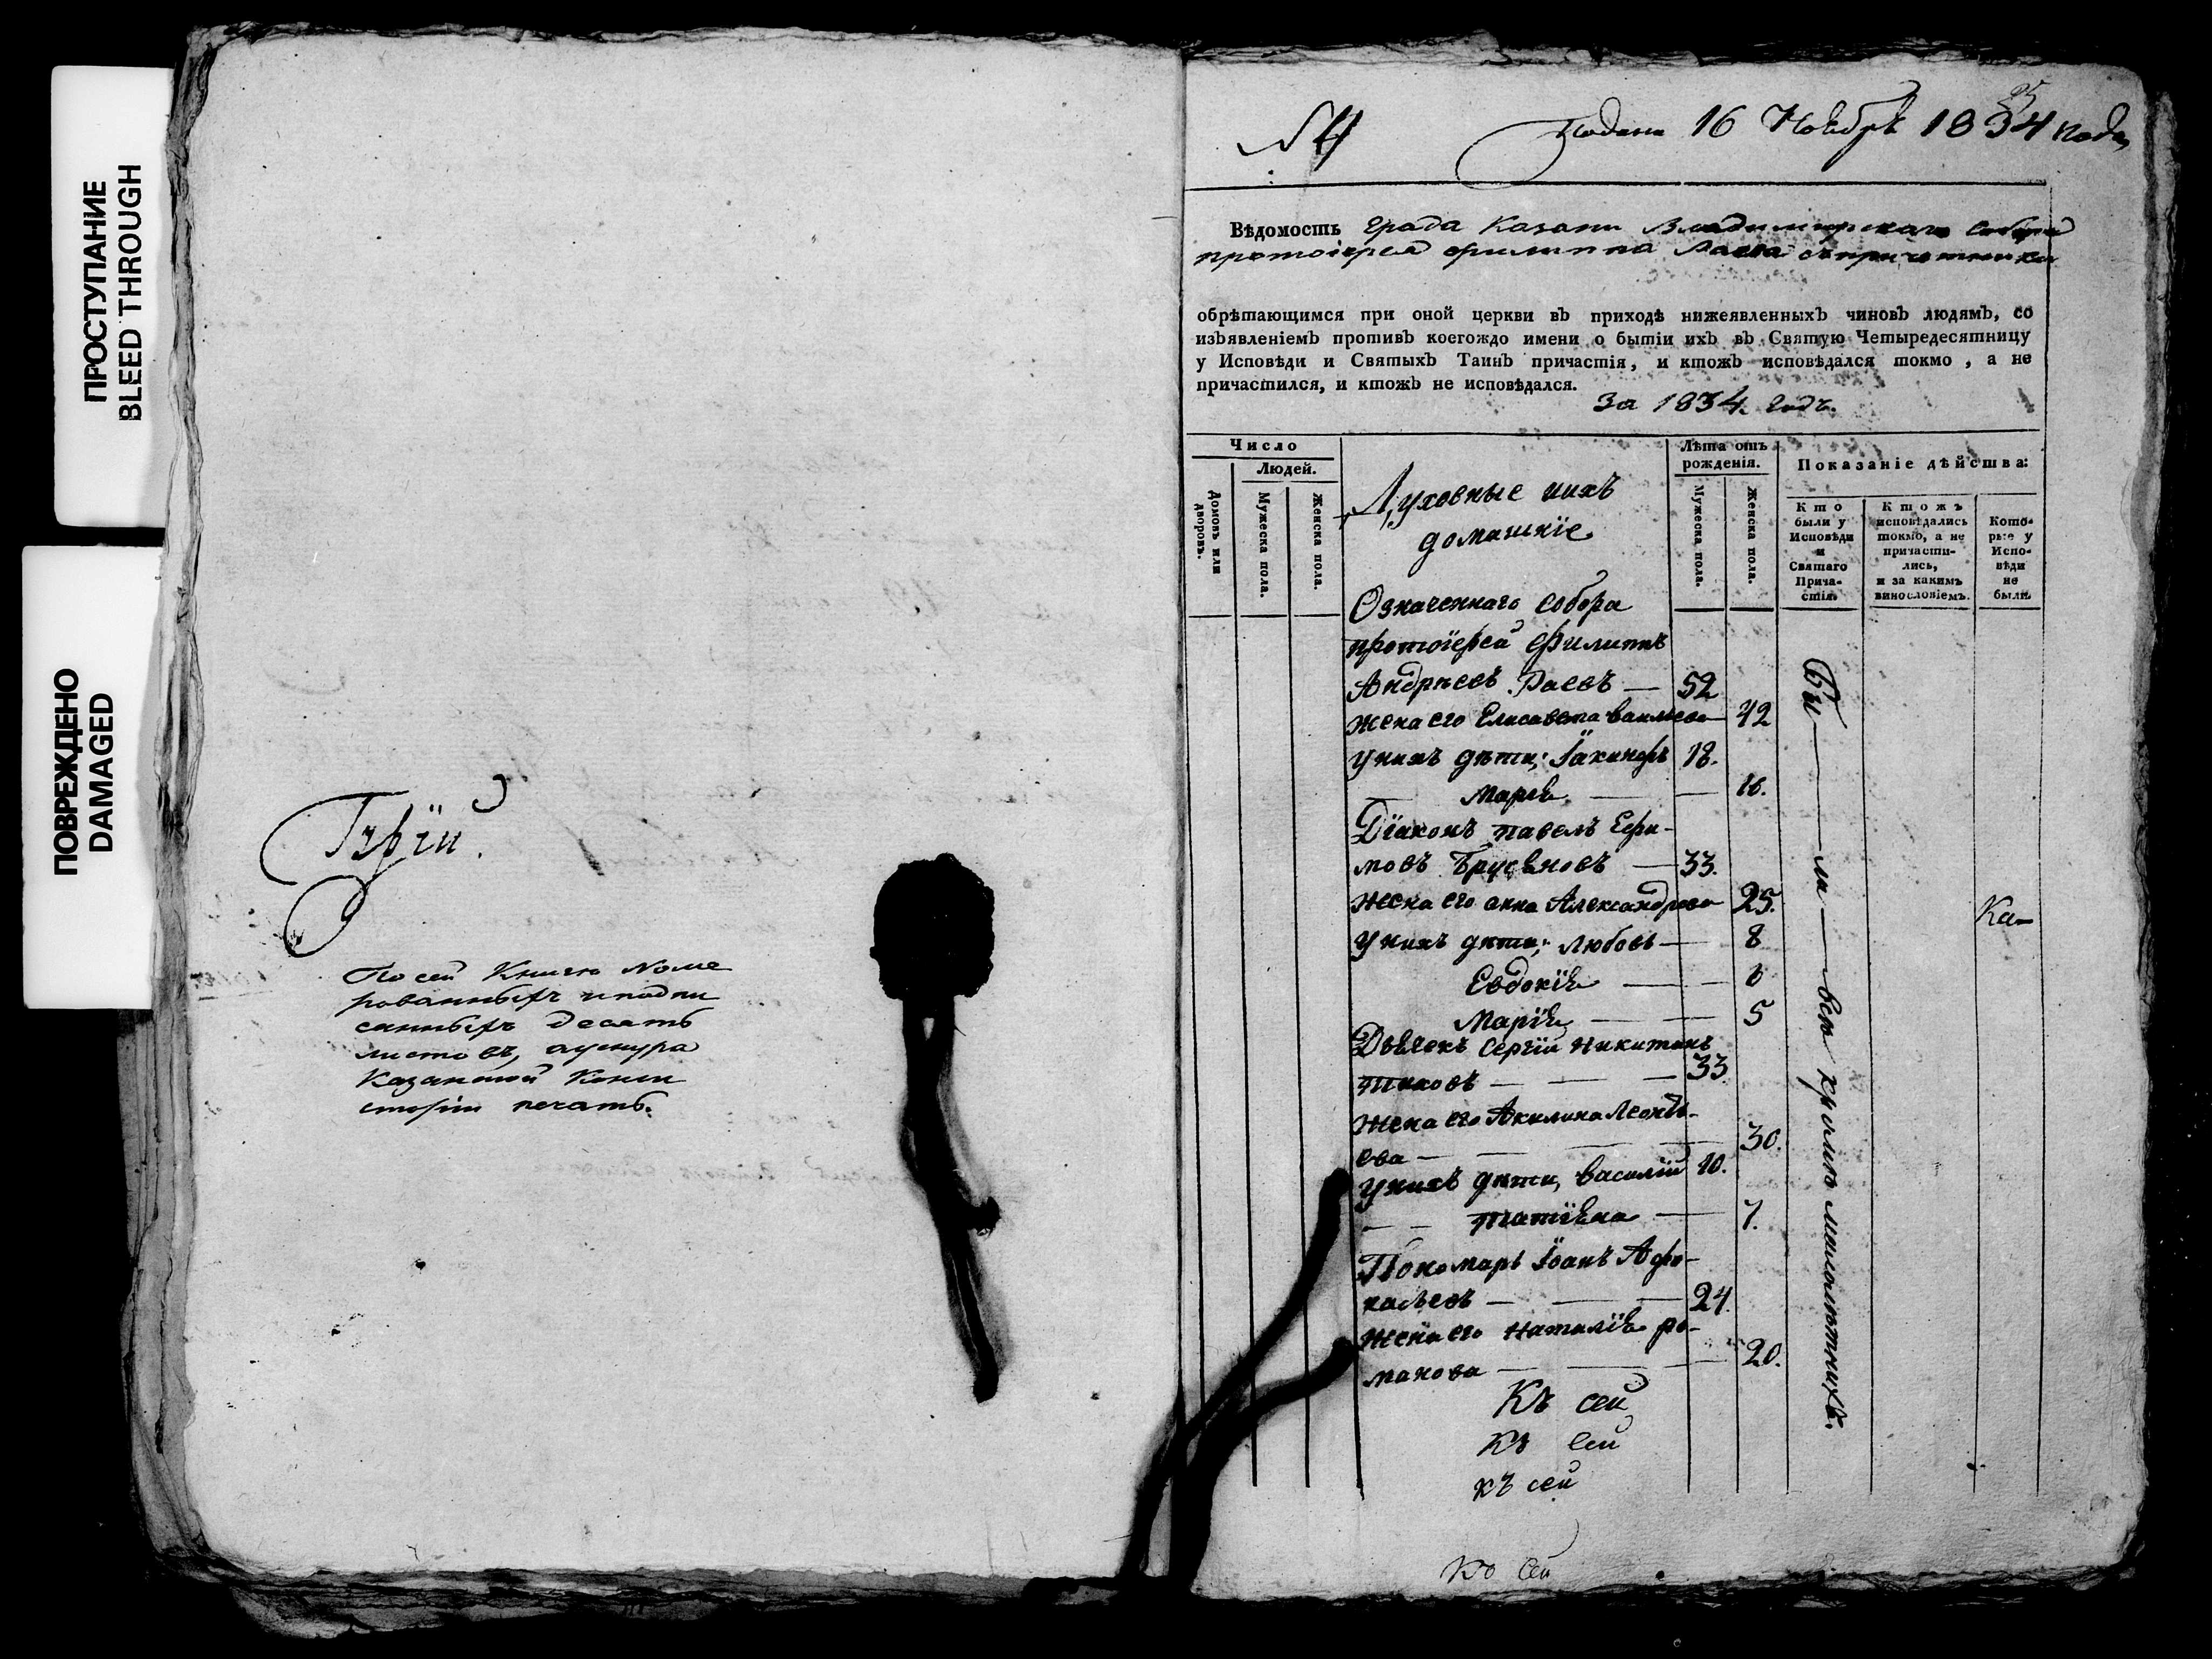 ПРОСТУПАНИЕ
BLEED THROUGH
ПОВРЕЖДЕНО
DAMAGED
По сей Книгѣ Номе
рованныхъ и подпи
санныхъ десять
листовъ,
Казанской Конси
сторіи печать.
№ 4
Подана 16 Ноября 1834 года
Вѣдомость града Казани Владимирскаго Собора
протоіерея Филиппа Раева съ причетники
обрѣтающимся при оной церкви въ приходѣ нижеявленныхъ чиновъ людямъ, со
изъявленіемъ противъ коегождо имени о бытіи ихъ въ Святую Четыредесятницу
у Исповѣди и Святыхъ Таинъ причастія, и ктожъ исповѣдался токмо, а не
причастился, и ктожъ не исповѣдался.
За 1834 годъ.
Число
Людей.
Домовъ или дворовъ.
Мужеска пола.
Женска пола.
Духовные и ихъ
домашніе
Лѣта отъ
рожденія.
Мужеска пола.
Женска пола.
Показаніе дѣйства:
Кто
были у
Исповѣди
и
Святаго
Прича-
стія.
Ктожъ
исповѣдались
токмо, а не
причасти-
лись,
и за какимъ
винословіемъ.
Кото-
рые у
Испо-
вѣди
не
были.
Означеннаго собора
протоіерей Филиппъ
Андреевъ Раевъ — 52
Жена его Елисавета Васильева — 42
У нихъ дѣти; Іакинфъ 18.
— Марія — — 16.
Діаконъ Павелъ Ефи-
мовъ — 33.
Жена его Анна Александрова 25.
У нихъ дѣти; Любовь — 8
Евдокія — — 6
Марія — — 5
Дьячекъ Сергій Никитинъ
— — — 33.
Жена его Акилина Леонть-
ева — — — 30.
У нихъ дѣти, Василій 10.
— — Татіяна — 7.
Пономарь Іоанъ Афо-
насьевъ — — — 24.
Жена его Наталія Ро-
манова — — — 20.
Бы — ли — всѣ кромѣ малолѣтнихъ.
Ка-
Къ сей
Къ сей
къ сей
Къ сей